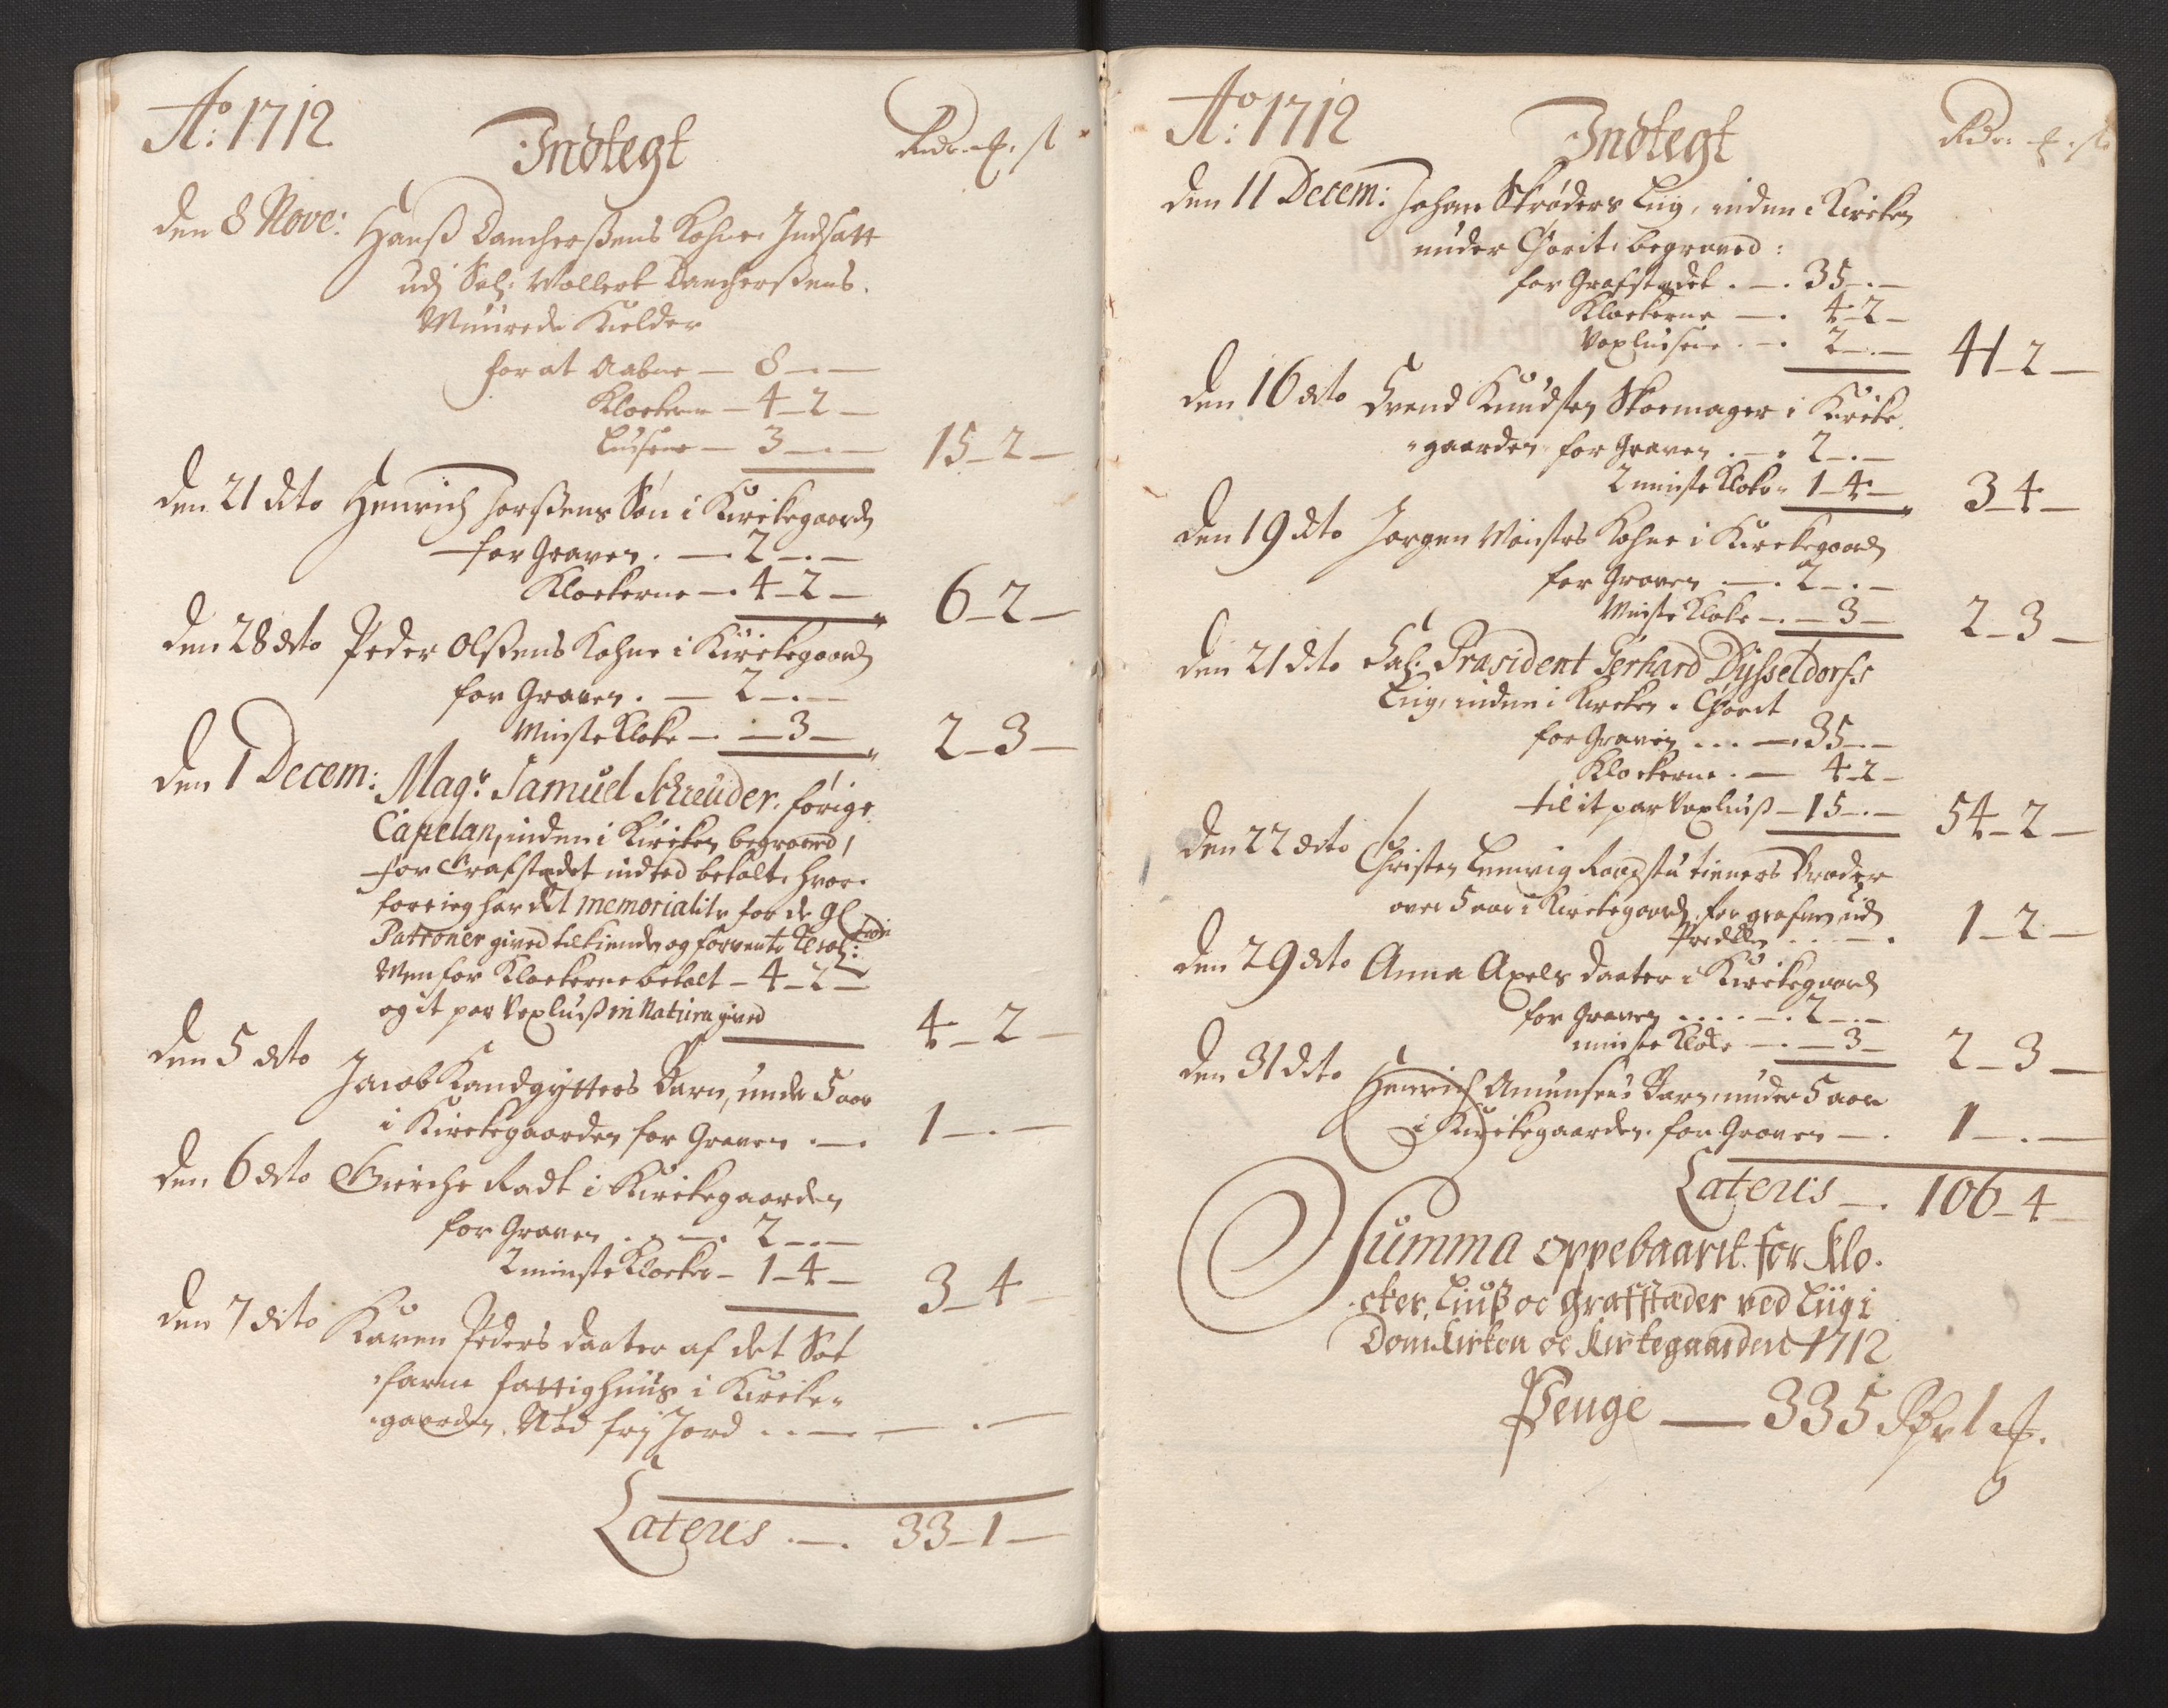 Ao: 1712
Indtegt
Rdr. ß
den 8 Nove: Hanß Danchersens Kohne Indsatt
udj Sal: Wollert Danchersens
Muurede Kielder
for at Aabne — 8 — . —
Klockerne — 4 — 2 —
Lusene — 3 — . — 15 — 2 —
den 21 dito Henrich Jorßens Søn i Kirckegaard
for Graven . — . 2 — . —
Klockerne — . 4 — 2 — 6 — 2 —
den 28 dito Peder Olßens Kohne i Kirckegaard
for Graven . — 2 — . —
Minste Klocke — . — 3 — 2 — 3 —
den 1 Decem: Magr. Samuel Schreuder, forige
Capelan, inden i Kircken begraved,
for Grafstædet indted betalt, hvor-
fore ieg har det memorialiter for de gl
Patroner gived tilkiende og forvente Resol:
Men for Klockerne betalt — 4 — 2 —
og it par Voxluuß in Natura gived 4 — 2 —
den 5 dito Jacob Kandgytters Barn, under 5 aar
i Kirckegaarden for Graven . — . 1 — . —
den 6 dito Giersche Radt i Kirckegaarden
for Graven . . — . 2 — . —
2 minste Klocker — 1 — 4 — 3 — 4 —
den 7 dito Karen Peders daater af det Søe
farne fattighuus i Kircke-
gaarden. Nød frj Jord . . — . — . —
Lateris . — . 33 — 1 —
Ao: 1712
Indtegt
Rdr. ß
den 11 Decem: Johan Skrøders Liig, inden i Kircken
under Choret begraved:
for Grafstædet . — . 35 — . —
Klockerne — . 4 — 2 —
Voxlusene . — . 2 — . — 41 — 2 —
den 16 dito Svend Knudsen Skoemager i Kircke
gaarden for Graven . — . 2 — . —
2 minste Klocker 1 — 4 — 3 — 4 —
den 19 dito Jørgen Mønsters Kohne i Kirckegaard
for Graven — . 2 — . —
Minste Klocke — . — 3 — 2 — 3 —
den 21 dito Sal: Præsident Gerhard Dysseldorfs
Liig, inden i Kircken i Choret
for Graven . . . — . 35 — . —
Klockerne . — 4 — 2 —
til it par Voxluuß — 15 — . — 54 — 2 —
den 22 dito Christen Lemvig Raadstu tieners Broder
over 5 aar i Kirckegaard, for grafven ud
Predicken . . . — . 1 — 2 —
den 29 dito Anna Axels daater i Kirckegaard
for Graven . . . . — . 2 — . —
minste Klocke — . — 3 — 2 — 3 —
den 31 dito Henrich Amunsens Barn under 5 aar
i Kirckegaarden for Graven — . 1 — . —
Lateris — . 106 — 4 —
Summa oppebaarit for Klo-
cker, Liuß oc Grafstæder ved Liig i
Domkirken oc Kirkegaarden 1712
Penge — 335 Rdr 1 ß.